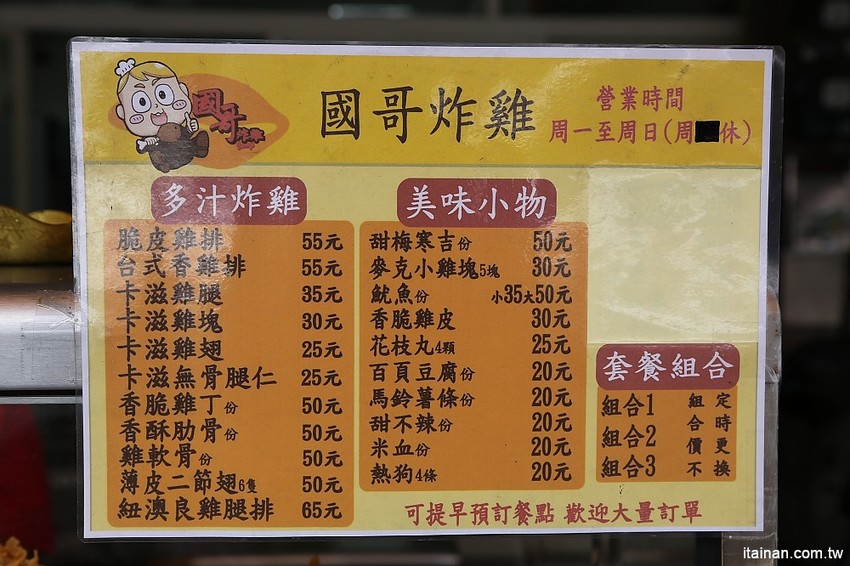 國哥
國哥炸雞
營業時間
周一至周日(周 休)
多汁炸雞
脆皮雞排 55元
台式香雞排 55元
卡滋雞腿 35元
卡滋雞塊 30元
卡滋雞翅 25元
卡滋無骨腿仁 25元
香脆雞丁份 50元
香酥肋骨份 50元
雞軟骨份 50元
薄皮二節翅6隻 50元
紐澳良雞腿排 65元
美味小物
甜梅寒吉份 50元
麥克小雞塊5塊 30元
魷魚份 小35大50元
香脆雞皮 30元
花枝丸4顆 25元
百頁豆腐份 20元
馬鈴薯條份 20元
甜不辣份 20元
米血份 20元
熱狗4條 20元
套餐組合
組合1
組合2
組合3
組合價不
定時更換
可提早預訂餐點 歡迎大量訂單
itainan.com.tw